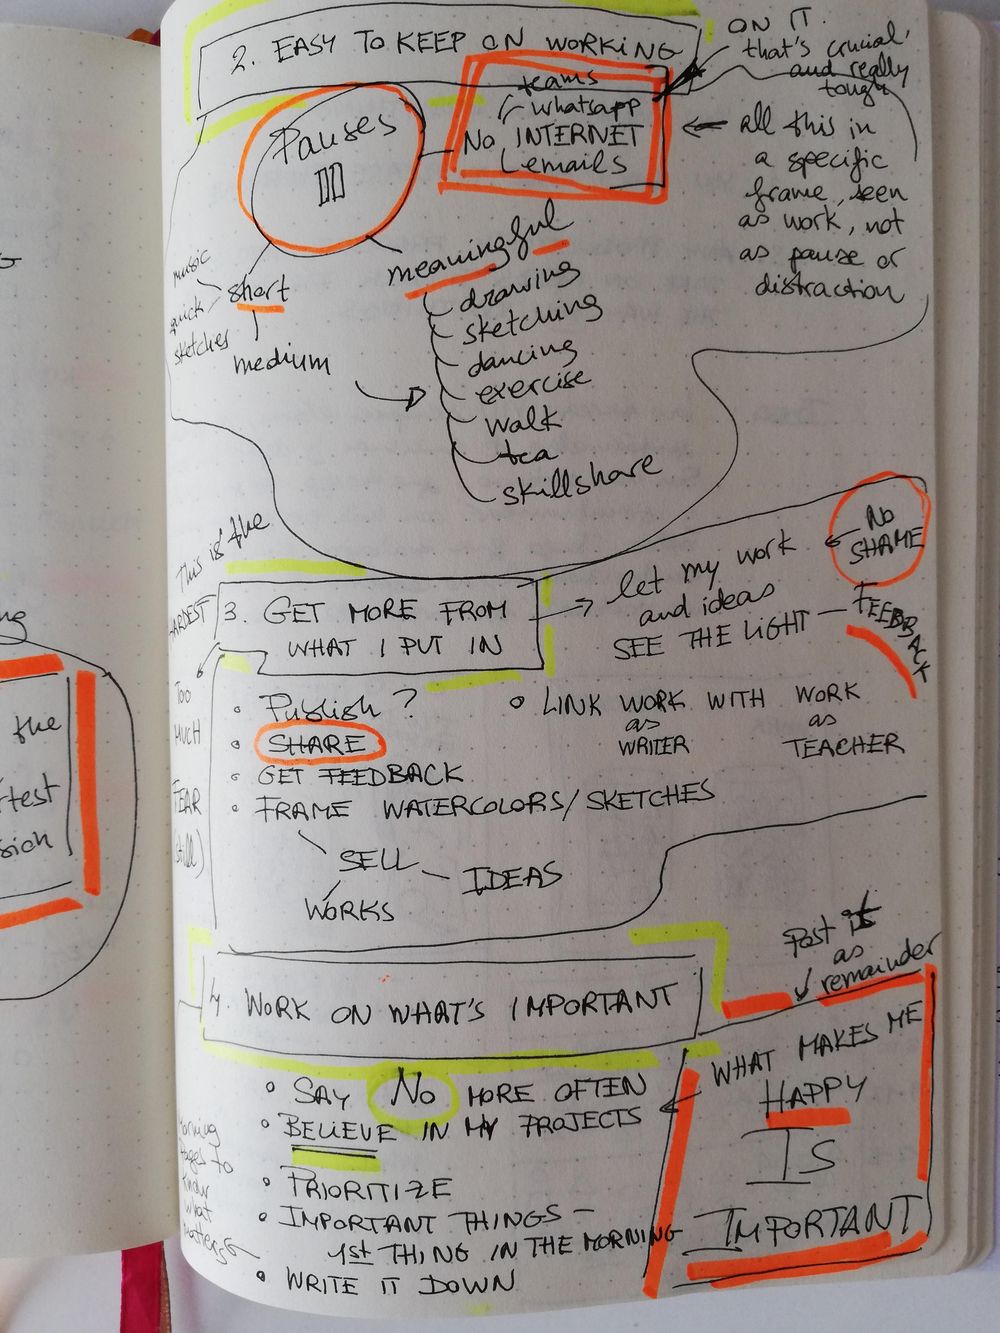 2. EASY TO KEEP ON WORKING
ON IT.
that's crucial,
and really
tough
teams
whatsapp
No INTERNET
emails
Pauses
all this in
a specific
frame, seen
as work, not
as pause or
distraction
meaningful
drawing
sketching
dancing
exercise
walk
tea
skillshare
short
music
quick
sketches
medium
This is the
HARDEST
3. GET MORE FROM
WHAT I PUT IN
let my work
and ideas
SEE THE LIGHT
No
SHAME
FEEDBACK
TOO
MUCH
FEAR
(still)
• Publish?
• SHARE
• GET FEEDBACK
• FRAME WATERCOLORS/SKETCHES
SELL
WORKS
IDEAS
• LINK WORK WITH WORK
as as
WRITER TEACHER
4. WORK ON WHAT'S IMPORTANT
Post it
as
remainder
WHAT MAKES ME
HAPPY
IS
IMPORTANT
• SAY NO MORE OFTEN
• BELIEVE IN MY PROJECTS
• PRIORITIZE
• IMPORTANT THINGS –
1st THING IN THE MORNING
• WRITE IT DOWN
Morning
Pages to
know
what
matters
the